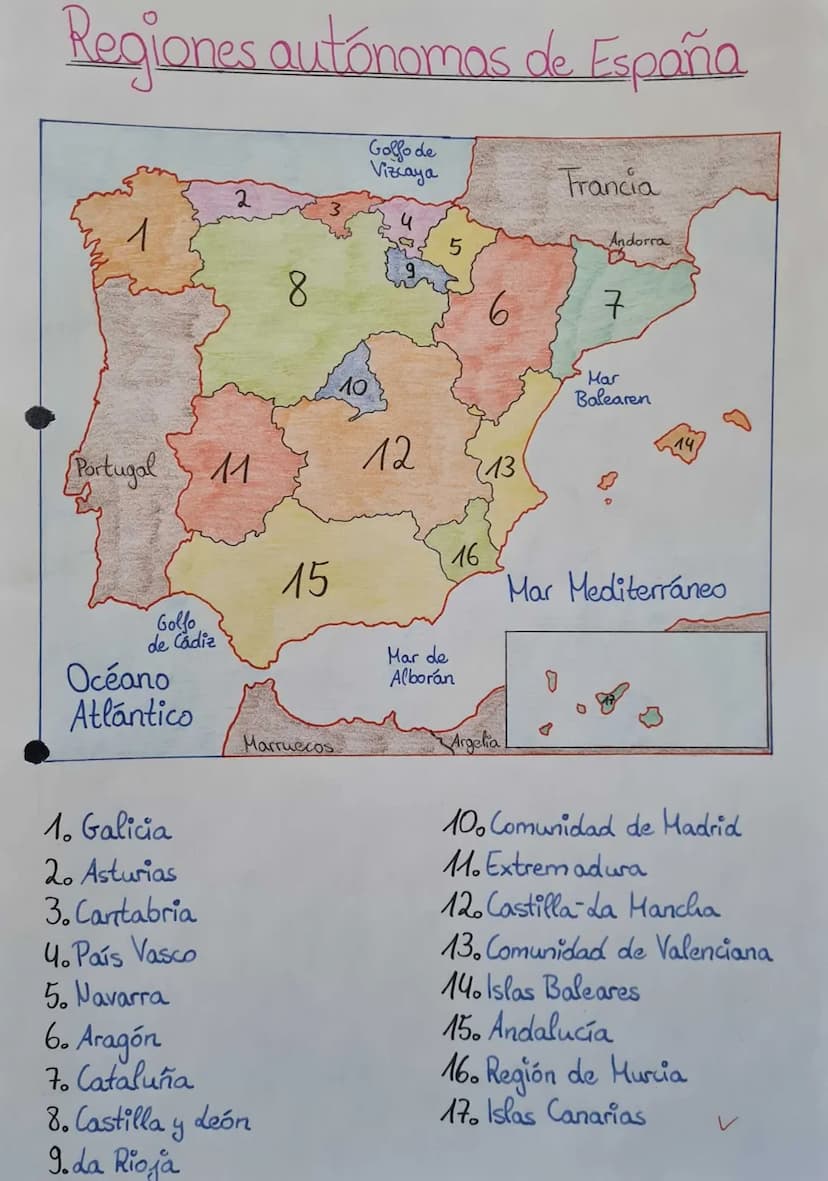 Regiones autónomas de España
Golfo de
Vizcaya
Francia
Andorra
1
2
3
4
5
9
8
6
7
10
Mar
Balearen
14
Portugal
11
12
13
15
16
Mar Mediterráneo
Golfo
de Cádiz
Mar de
Alborán
Océano
Atlántico
17
Marruecos
Argelia
1. Galicia
2. Asturias
3. Cantabria
4. País Vasco
5. Navarra
6. Aragón
7. Cataluña
8. Castilla y León
9. La Rioja
10. Comunidad de Madrid
11. Extremadura
12. Castilla-La Mancha
13. Comunidad de Valenciana
14. Islas Baleares
15. Andalucía
16. Región de Murcia
17. Islas Canarias